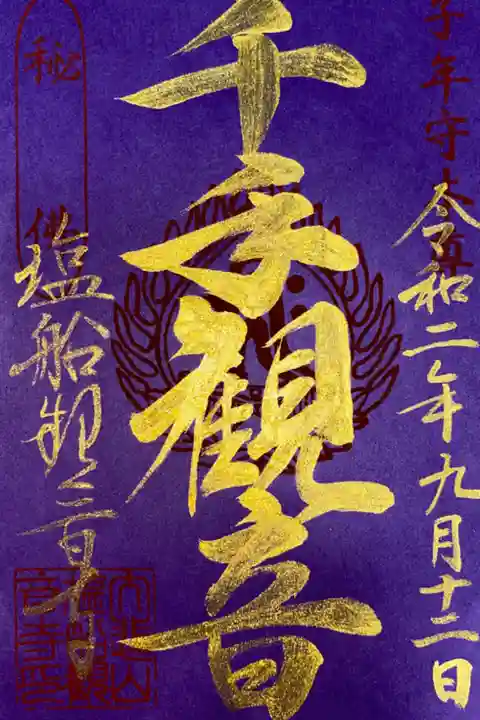 子年守本尊
令和二年九月十二日
千手観音
秘佛
塩船観音寺